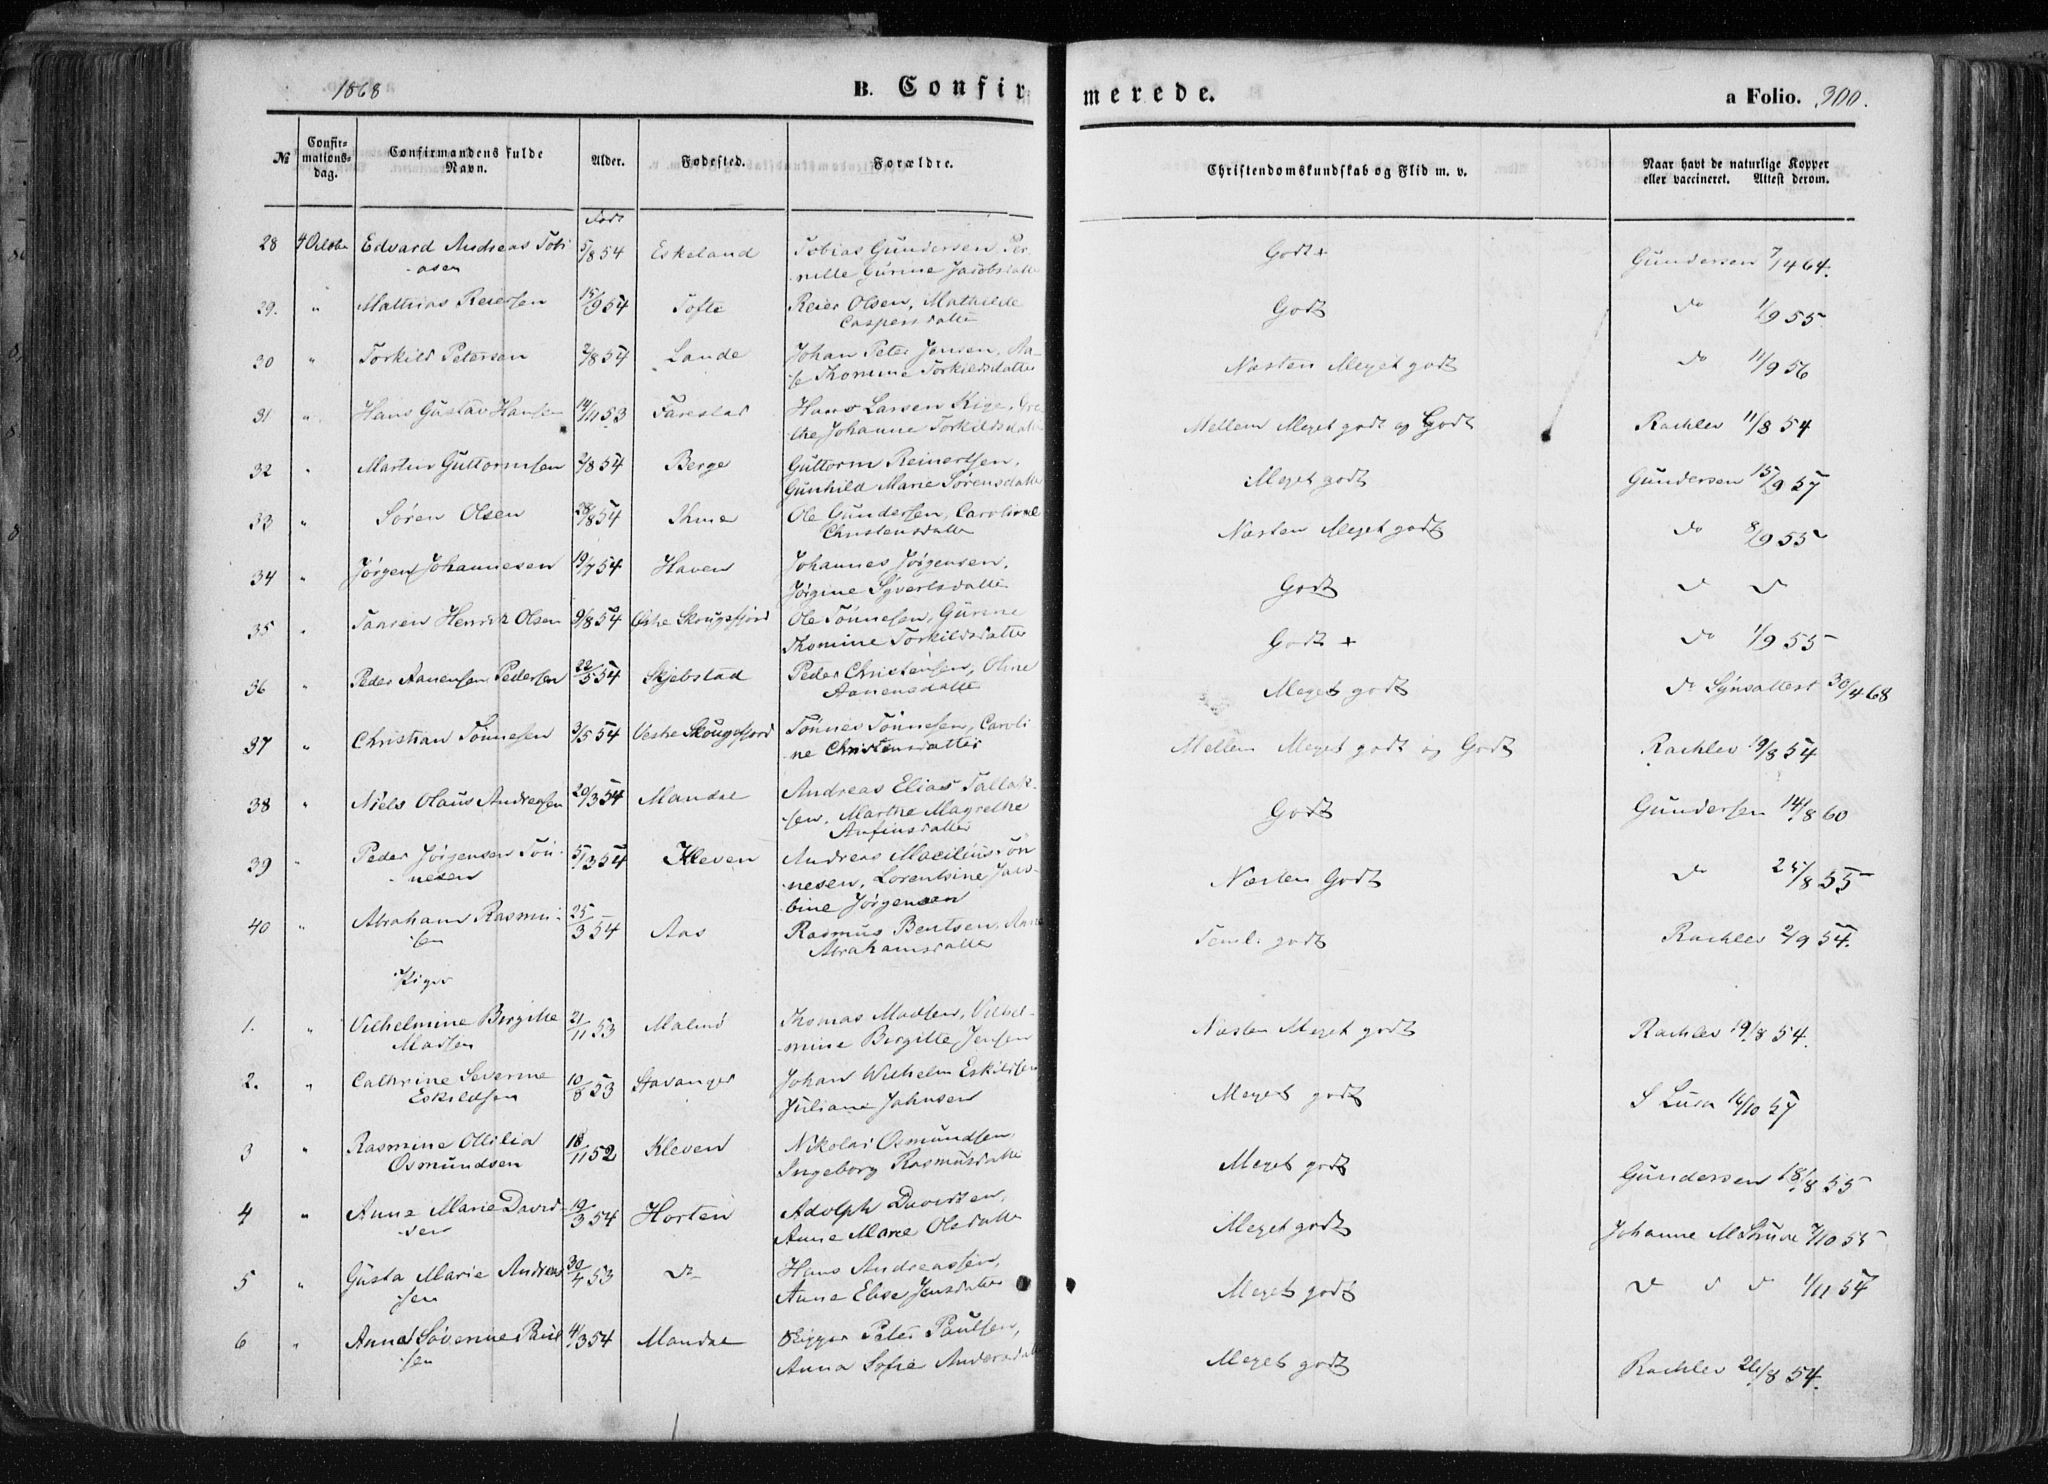 1868 B. Confirmerede. a Folio. 300.
№ Confirmationsdag. Confirmandens fulde Navn. Alder. Fødested. Forældre. Christendomskundskab og Flid m. v. Naar havt de naturlige Kopper eller vaccineret. Attest derom.
Født
28 4 Octobr Edvard Andreas Tobi- 5/8 54 Eskeland Tobias Gundersen, Per- Godt + Gundersen 7/4 64.
asen nille Gurine Jacobsdatter
29. " Mathias Reiersen 15/9 54 Tofte Reier Olsen, Mathilde Godt do 1/9 55.
Caspersdatter
30 " Torkild Petersen 2/8 54 Lande Johan Peter Jensen, Aa- Næsten Meget godt do 11/9 56
se Thomine Torkildsdatter
31 " Hans Gustav Hansen 14/11 53 Farestad Hans Larsen Kige, Gre- Mellem Meget godt og Godt Rachlev 11/8 54
the Johanne Torkildsdatter
32 " Martin Guttormsen 2/8 54 Berge Guttorm Reinertsen, Meget godt Gundersen 15/9 57
Gunhild Marie Sørensdatter
33 " Søren Olsen 28/8 54 Ihme Ole Gundersen, Caroline Næsten Meget godt do 8/9 55
Christensdatter
34 " Jørgen Johannesen 19/7 54 Haven Johannes Jørgensen, Godt d d
Jørgine Syvertsdatter
35 " Taarsen Henrik Olsen 9/8 54 Østre Skougsfjord Ole Tønnesen, Gurine Godt + do 1/9 55
Thomine Torkildsdatter
36 " Peder Aanensen Pedersen 22/5 54 Skjebstad Peder Christensen, Oline Meget godt do Synsattest 30/4 68
Aanensdatter
37 " Christian Tønnesen 3/5 54 Vestre Skougsfjord Tønnes Tønnesen, Caroli- Mellem Meget godt og Godt Rachlev 19/8 54
ne Christensdatter
38 " Niels Olaus Andreasen 20/3 54 Mandal Andreas Elias Tallak- Godt Gundersen 14/8 60
sen, Marthe Magrethe
Anfinsdatter
39 " Peder Jørgensen Tøn- 5/3 54 Kleven Andreas Macilius Tøn Næsten Godt do 25/8 55
nesen nesen, Lorentsine Jaco-
bine Jørgensen
40 " Abraham Rasmu- 25/3 54 Aas Rasmus Bentsen, Anne Teml. godt Rachlev 2/9 54.
sen Abrahamsdatter
Piger
1. " Vilhelmine Birgitte 21/11 53 Malmø Thomas Madsen, Vilhel- Næsten Meget godt Rachlev 19/8 54.
Madsen mine Birgitte Jensen
2. " Cathrine Severine 10/8 53 Stavanger Johan Wilhelm Eskildsen Meget godt S Lura 16/10 57
Eskildsen Juliane Johnsen
3 " Rasmine Otilia 18/11 52 Kleven Nikolai Osmundsen, Meget godt Gundersen 18/8 55
Osmundsen Ingeborg Rasmusdatte
4 " Anne Marie David- 19/3 54 Horten Adolph Davidsen, Meget godt Johanne M Struve 7/10 55
sen Anne Marie Olsdatte
5 " Gusta Marie Andreas 30/4 53 do Hans Andreassen, Meget godt d d d 1/11 54
sen Anne Elise Jensdatte
6 " Anna Severine Paul 4/3 54 Mandal Peter Paulsen, Meget godt Rachlev 26/8 54.
sen Anna Sofie Andersdatte